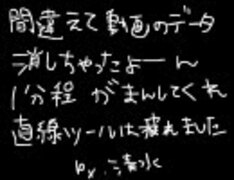 間違えて動画のデータ
消しちゃったよーん
1分程 がまんしてくれ
直線ツールは疲れました
by.清水